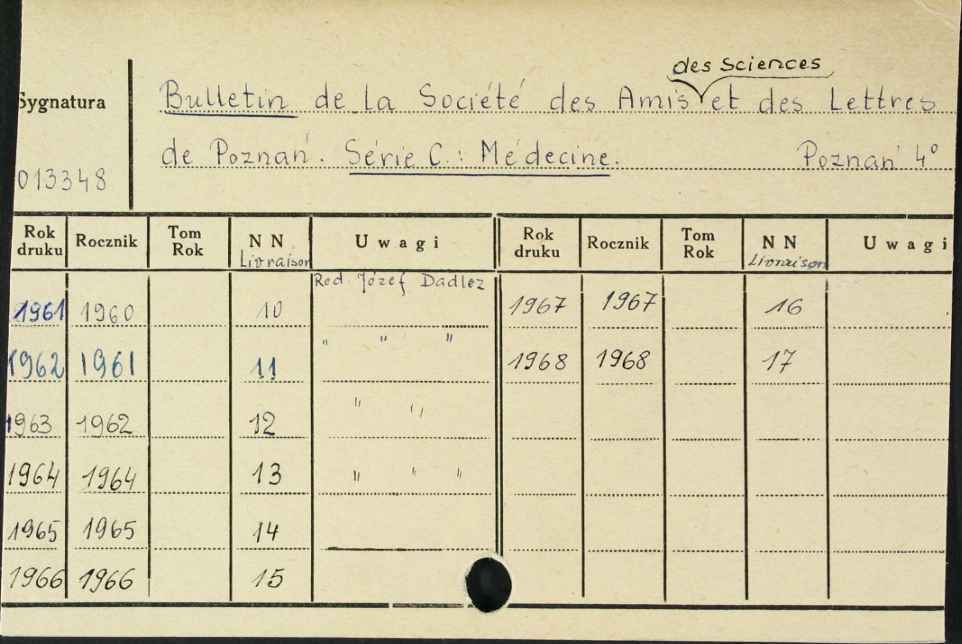 des Sciences
Sygnatura
Bulletin de la Société des Amis et des Lettres
de Poznań. Série C.: Médecine. Poznań 4°
013348
Rok druku Rocznik Tom Rok NN Livraison Uwagi Rok druku Rocznik Tom Rok NN Livraison Uwagi
Red. Józef Dadlez
1961 1960 10 1967 1967 16
1962 1961 11 " " " 1968 1968 17
1963 1962 12 " "
1964 1964 13 " " "
1965 1965 14
1966 1966 15